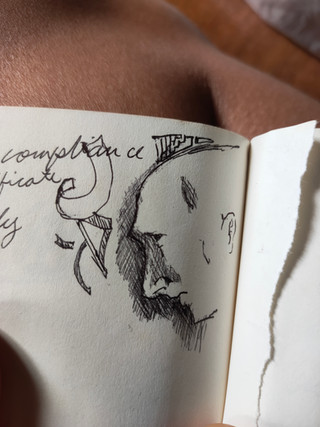 compliance
ficate
ly